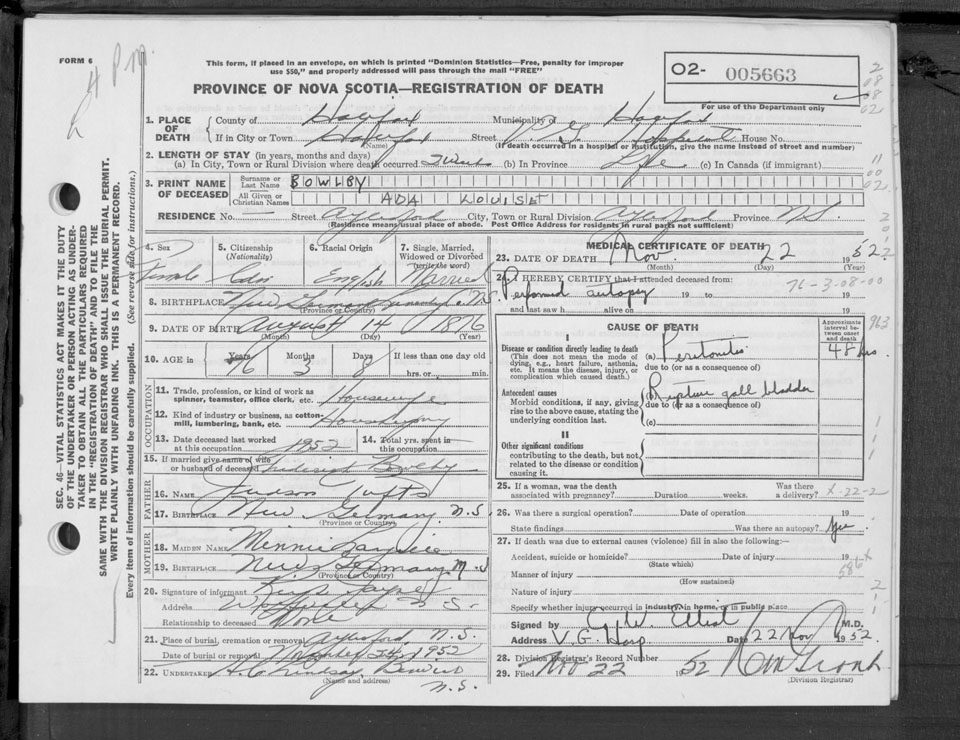 FORM 6
This form, if placed in an envelope, on which is printed "Dominion Statistics—Free, penalty for improper
use $50," and properly addressed will pass through the mail "FREE"
PROVINCE OF NOVA SCOTIA—REGISTRATION OF DEATH
02- 005663
For use of the Department only
SEC. 46—VITAL STATISTICS ACT MAKES IT THE DUTY
OF THE UNDERTAKER OR PERSON ACTING AS UNDER-
TAKER TO OBTAIN ALL THE PARTICULARS REQUIRED
IN THE "REGISTRATION OF DEATH" AND TO FILE THE
SAME WITH THE DIVISION REGISTRAR WHO SHALL ISSUE THE BURIAL PERMIT.
WRITE PLAINLY WITH UNFADING INK. THIS IS A PERMANENT RECORD.
Every item of information should be carefully supplied. (See reverse side for instructions.)
1. PLACE OF DEATH
County of Halifax Municipality of Halifax
If in City or Town Halifax Street V. G. Hospital House No.
(Name) (If death occurred in a hospital or institution, give the name instead of street and number)
2. LENGTH OF STAY (in years, months and days)
(a) In City, Town or Rural Division where death occurred (b) In Province Life (c) In Canada (if immigrant)
3. PRINT NAME OF DECEASED
Surname or Last Name BOWLBY
All Given or Christian Names ADA LOUISE
RESIDENCE No. — Street Aylesford City, Town or Rural Division Aylesford Province N.S.
(Residence means usual place of abode. Post Office Address for residents in rural parts not sufficient)
4. Sex Female
5. Citizenship (Nationality) Cdn
6. Racial Origin English
7. Single, Married, Widowed or Divorced (write the word) Married
8. BIRTHPLACE New Germany N.S.
(Province or Country)
9. DATE OF BIRTH August 14 1876
(Month) (Day) (Year)
10. AGE in Years 76 Months 3 Days 8 If less than one day old
hrs. or min.
OCCUPATION
11. Trade, profession, or kind of work as spinner, teamster, office clerk, etc. Housewife
12. Kind of industry or business, as cotton-mill, lumbering, bank, etc. Housekeeping
13. Date deceased last worked at this occupation 1952
14. Total yrs. spent in this occupation
15. If married give name of wife or husband of deceased Frederick Bowlby
FATHER
16. NAME Judson Tufts
17. BIRTHPLACE New Germany N.S.
(Province or Country)
MOTHER
18. MAIDEN NAME Minnie
19. BIRTHPLACE New Germany N.S.
(Province or Country)
20. Signature of informant
Address Wolfville N.S.
Relationship to deceased None
21. Place of burial, cremation or removal Aylesford, N.S.
Date of burial or removal November 24, 1952
22. UNDERTAKER H. C. Lindsay, Berwick
(Name and address)
N.S.
MEDICAL CERTIFICATE OF DEATH
23. DATE OF DEATH Nov. 22 1952
(Month) (Day) (Year)
24. I HEREBY CERTIFY that I attended deceased from:
Performed autopsy 19 to 19
and last saw h alive on 19
76-3-08-00
CAUSE OF DEATH
Approximate interval between onset and death
I
Disease or condition directly leading to death
(This does not mean the mode of dying, e.g., heart failure, asthenia, etc. It means the disease, injury, or complication which caused death.)
(a) Peritonitis 48 hrs
due to (or as a consequence of)
Antecedent causes
Morbid conditions, if any, giving rise to the above cause, stating the underlying condition last.
(b) Rupture gall bladder
due to (or as a consequence of)
(c)
II
Other significant conditions
contributing to the death, but not related to the disease or condition causing it.
25. If a woman, was the death associated with pregnancy? Duration weeks. Was there a delivery?
26. Was there a surgical operation? Date of operation 19
State findings Was there an autopsy? Yes
27. If death was due to external causes (violence) fill in also the following:—
Accident, suicide or homicide? Date of injury 19
(State which)
Manner of injury
(How sustained)
586
Nature of injury
Specify whether injury occurred in industry, in home, or in public place
Signed by W. Elliot M.D.
Address V. G. Hosp. Date 22 Nov 1952.
28. Division Registrar's Record Number
29. Filed Nov 22 1952
(Division Registrar)